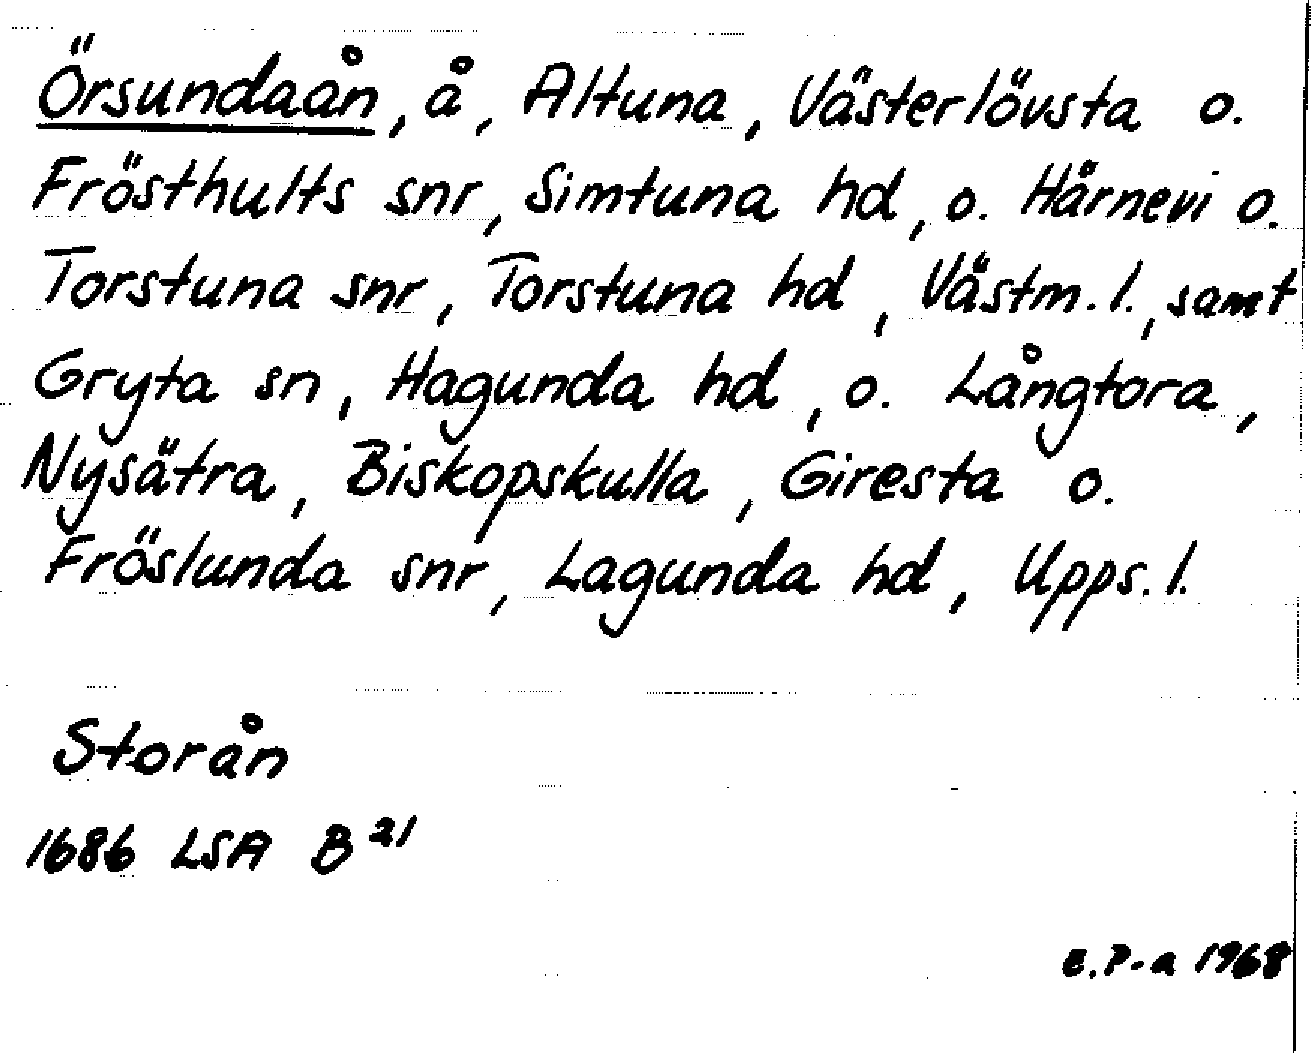 Örsundaån, å, Altuna, Västerlövsta o.
Frösthults snr, Simtuna hd, o. Härnevi o.
Torstuna snr, Torstuna hd, Västm. l., samt
Gryta sn, Hagunda hd, o. Långtora,
Nysätra, Biskopskulla, Giresta o.
Fröslunda snr, Lagunda hd, Upps. l.
Storån
1686 LSA B²¹
E.P-a 1968